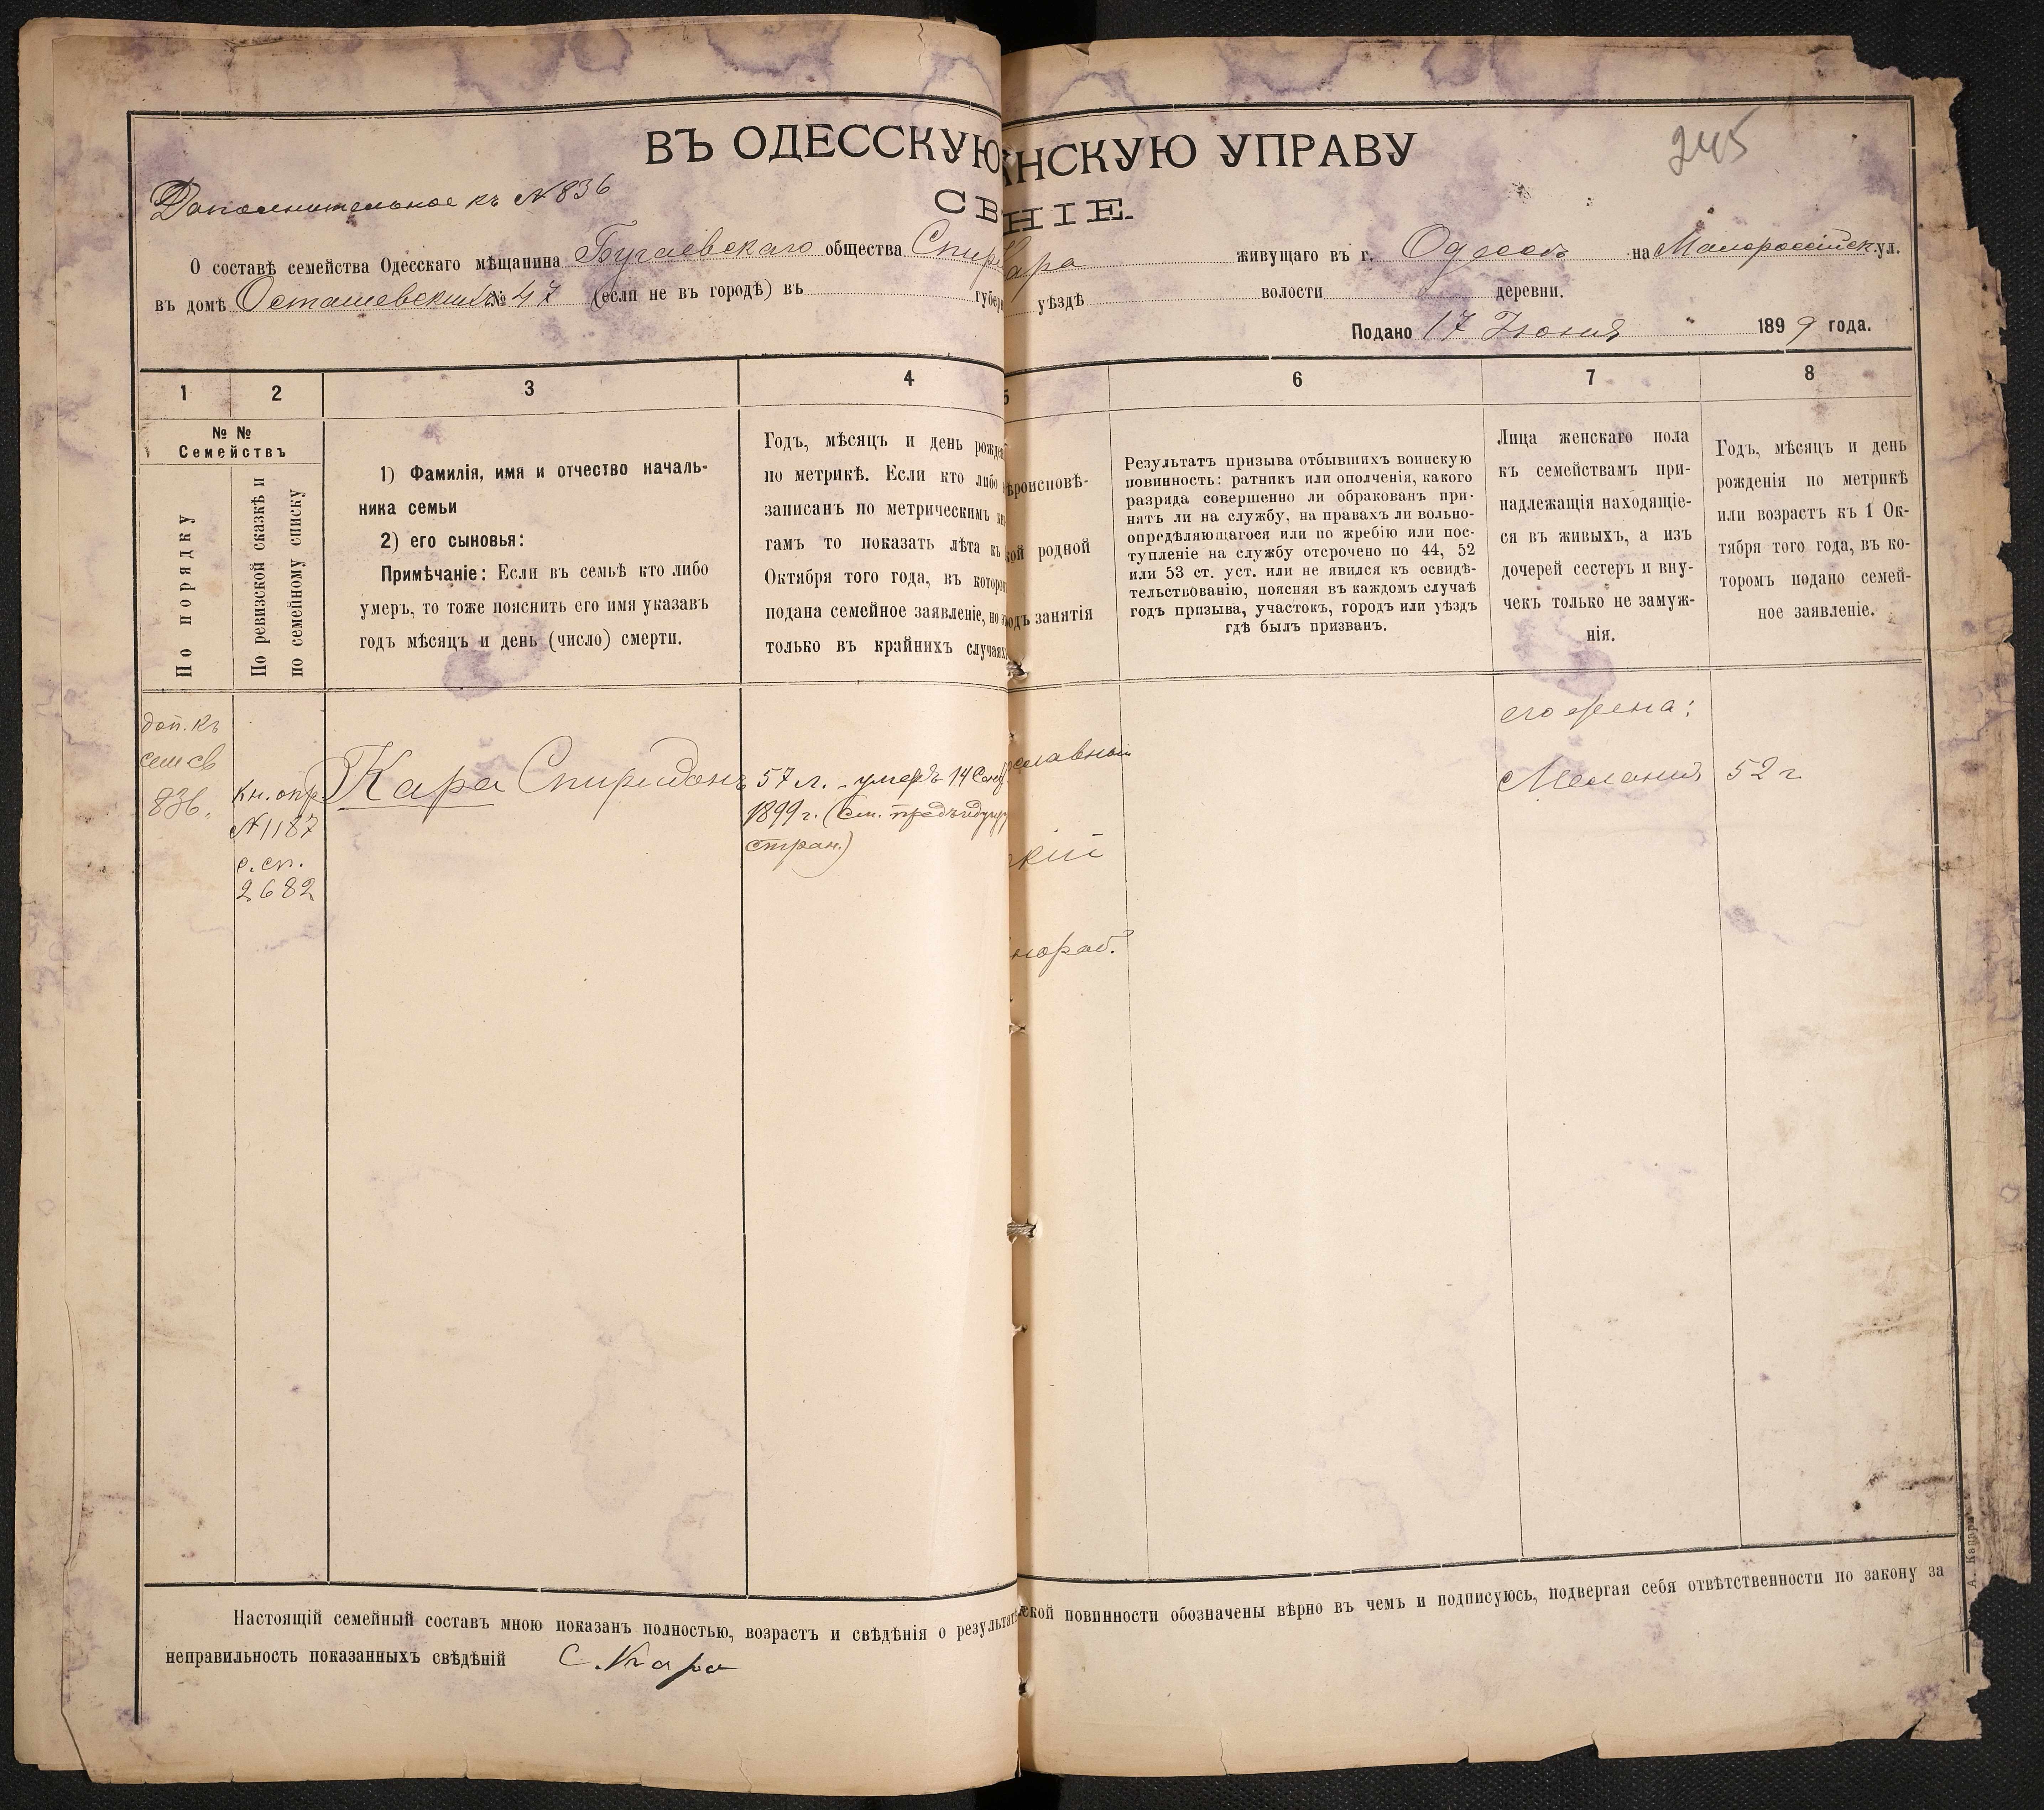 ВЪ ОДЕССКУЮ
АНСКУЮ УПРАВУ
245
Дополнительное къ № 836
СВ
НІЕ.
О составѣ семейства Одесскаго мѣщанина Бугаевскаго общества Спир
Кара живущаго въ г. Одессѣ на Малороссійск. ул.
въ домѣ Осташевскаго № 47 (если не въ городѣ) въ губер
уѣздѣ волости деревни.
Подано 17 Іюня 1899 года.
1 2 3 4 5 6 7 8
№ №
Семействъ
По порядку
По ревизской сказкѣ и
по семейному списку
1) Фамилія, имя и отчество началь-
ника семьи
2) его сыновья:
Примѣчаніе: Если въ семьѣ кто либо
умеръ, то тоже пояснить его имя указавъ
годъ мѣсяцъ и день (число) смерти.
Годъ, мѣсяцъ и день рожден
по метрикѣ. Если кто либо
записанъ по метрическимъ кн
гамъ то показать лѣта къ
Октября того года, въ которо
подана семейное заявленіе, но э
только въ крайнихъ случаях
ѣроисповѣ-
кой родной
одъ занятія
Результатъ призыва отбывшихъ воинскую
повинность: ратникъ или ополченія, какого
разряда совершенно ли обракованъ при-
нятъ ли на службу, на правахъ ли вольно-
опредѣляющагося или по жребію или пос-
тупленіе на службу отсрочено по 44, 52
или 53 ст. уст. или не явился къ освидѣ-
тельствованію, поясняя въ каждомъ случаѣ
годъ призыва, участокъ, городъ или уѣздъ
гдѣ былъ призванъ.
Лица женскаго пола
къ семействамъ при-
надлежащія находящіе-
ся въ живыхъ, а изъ
дочерей сестеръ и вну-
чекъ только не замуж-
нія.
Годъ, мѣсяцъ и день
рожденія по метрикѣ
или возрастъ къ 1 Ок-
тября того года, въ ко-
торомъ подано семей-
ное заявленіе.
доп. къ
сем св
836.
кн. опр
№ 1187
с. сп.
2682
Кара Спиридонъ
57 л. - умеръ 14 Сент
1899 г. (См. предъидущ
стран.)
славный
кій
нораб.
его жена:
Меланія 52 г
Настоящій семейный составъ мною показанъ полностью, возрастъ и свѣдѣнія о результат
ской повинности обозначены вѣрно въ чемъ и подписуюсь, подвергая себя отвѣтственности по закону за
неправильность показанныхъ свѣдѣній С. Кара